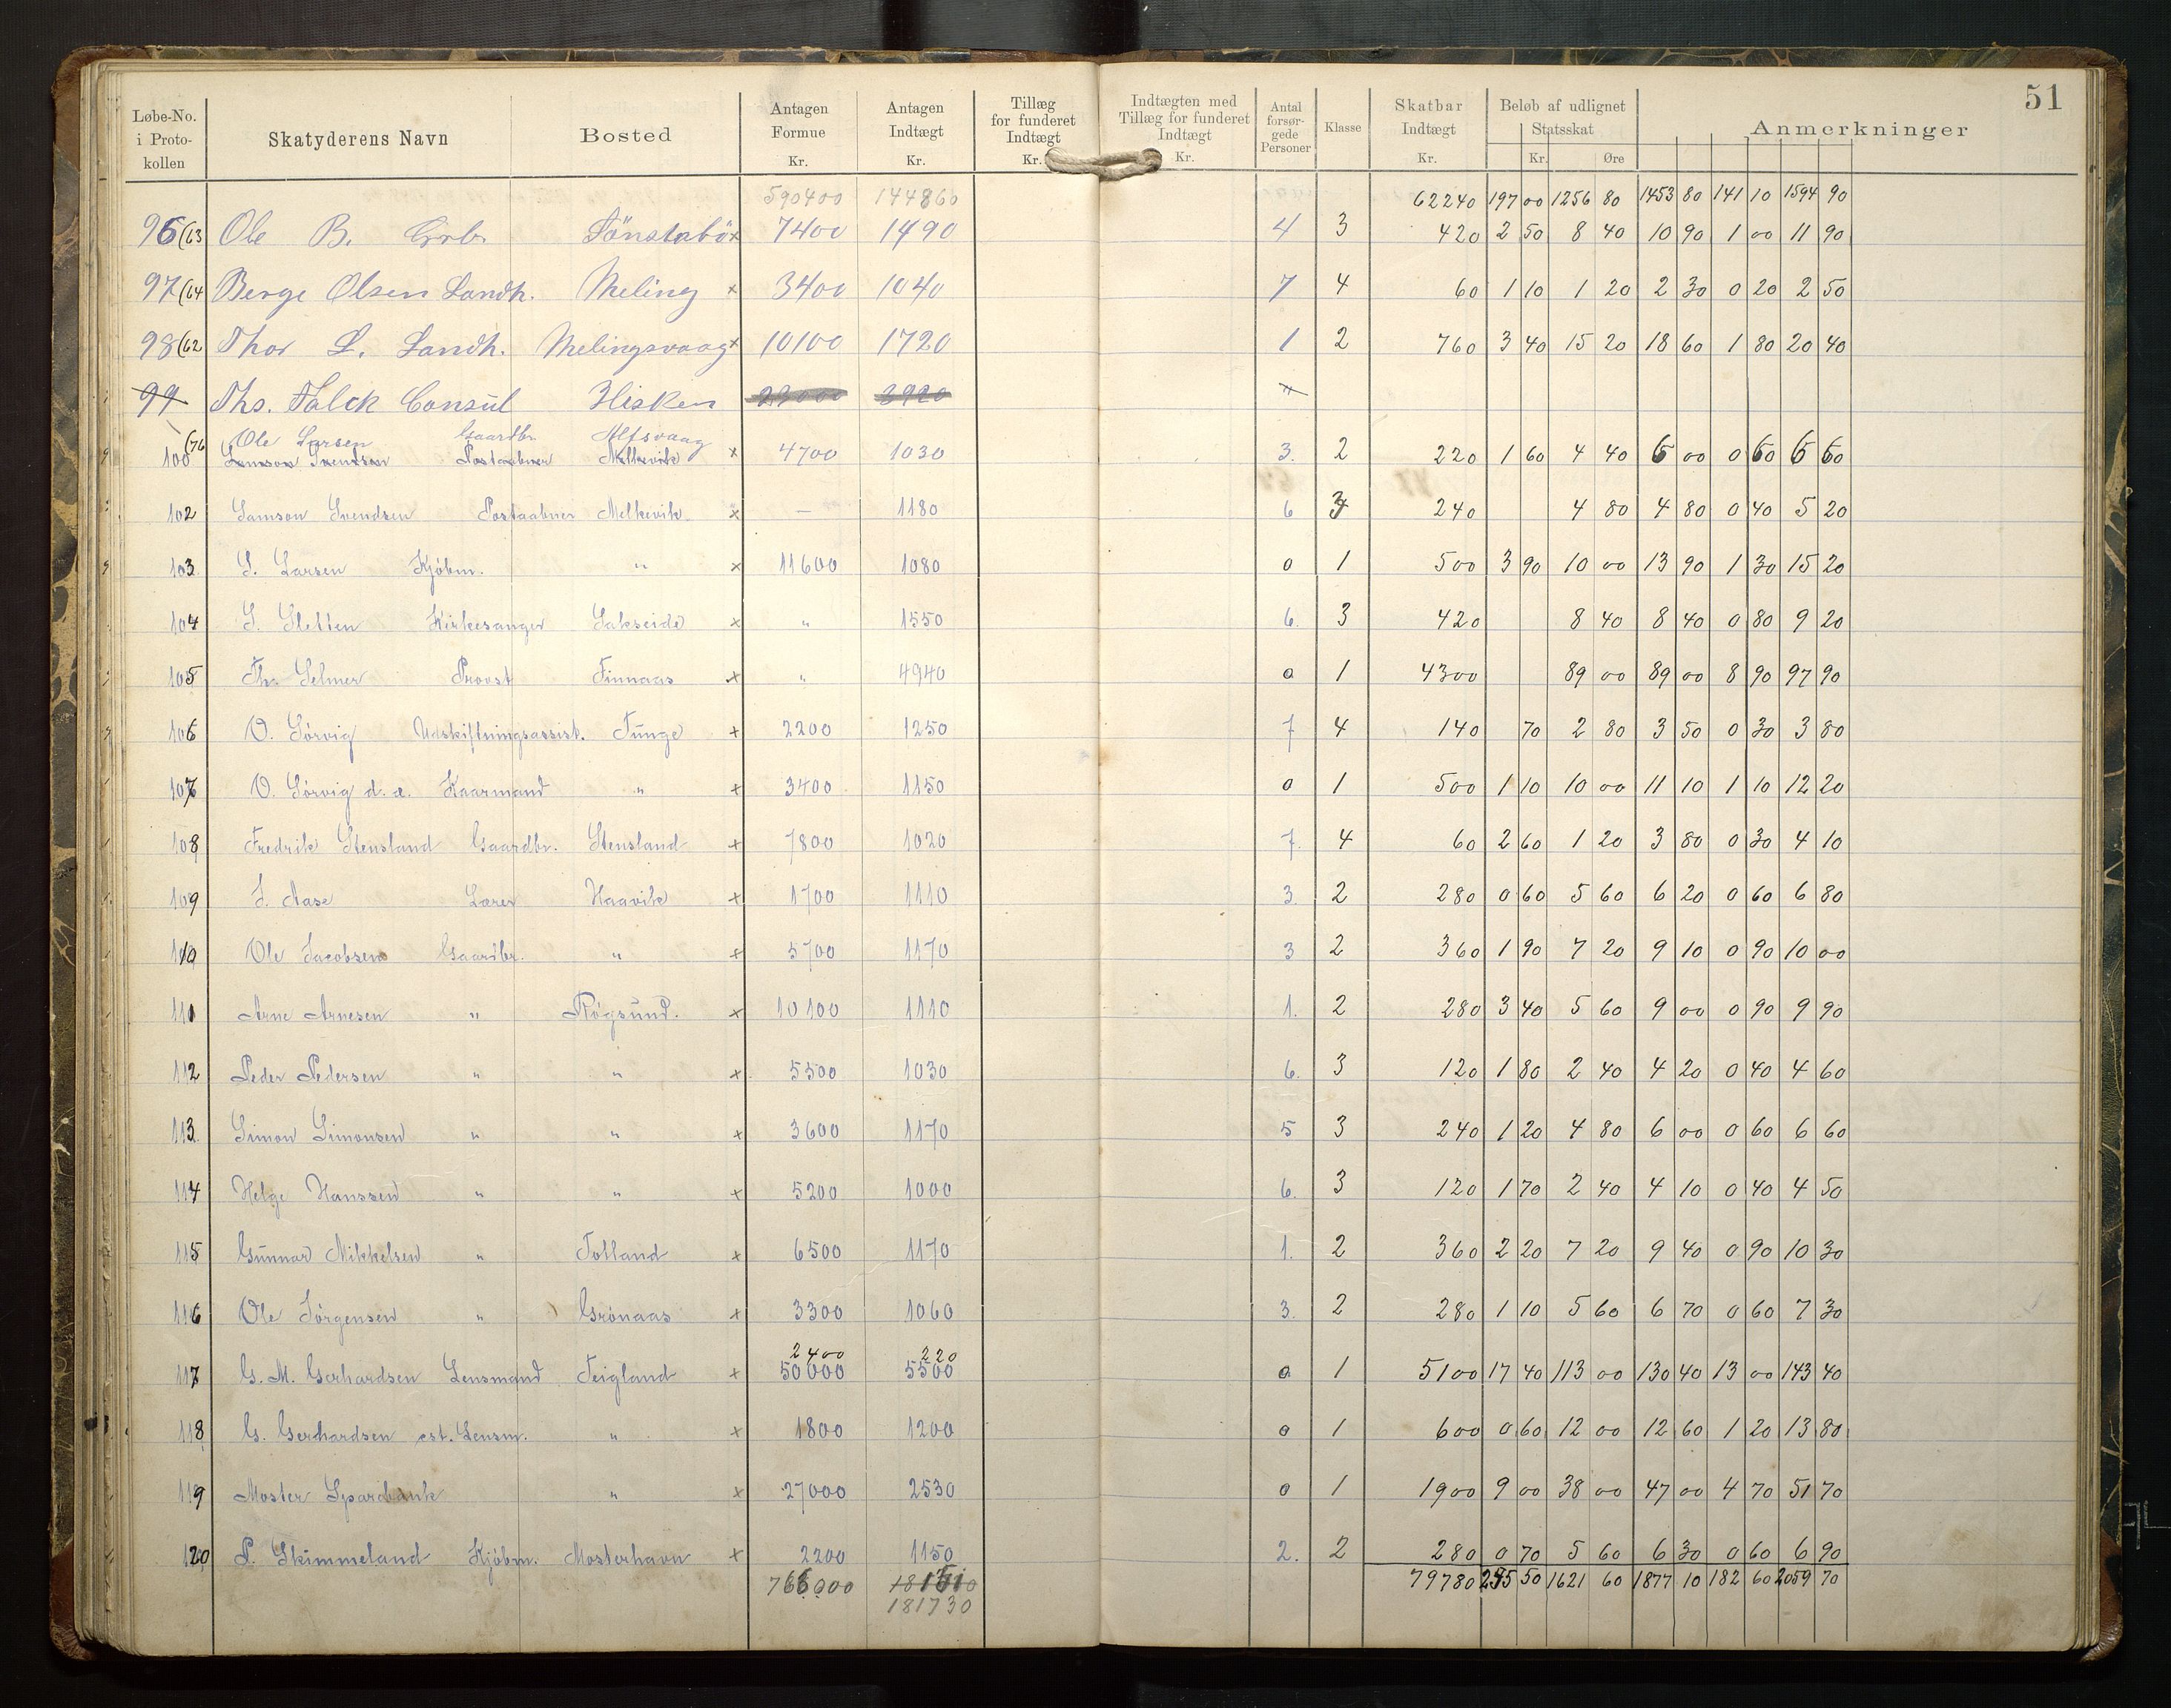 51
Løbe-No. i Protokollen Skatyderens Navn Bosted Antagen Formue Kr. Antagen Indtægt Kr. Tillæg for funderet Indtægt Kr. Indtægten med Tillæg for funderet Indtægt Kr. Antal forsørgede Personer Klasse Skatbar Indtægt Kr. Beløb af udlignet Statsskat Kr. Øre Anmerkninger
590400 144860 62240 197 00 1256 80 1453 80 141 10 1594 90
96 (63 Ole B. Grb. x 7400 1490 4 3 420 2 50 8 40 10 90 1 00 11 90
97 (64 Berge Olsen Landh. Meling x 3400 1040 7 4 60 1 10 1 20 2 30 0 20 2 50
98 (62 Thor L. Landh. Melingsvaag x 10100 1720 1 2 760 3 40 15 20 18 60 1 80 20 40
99 Ths. Falck Consul Hisken "
Ole Larsen Gaardbr. Alfsvaag
100 (76 Samson Svendsen Postaabner Melkevik x 4700 1030 3. 2 220 1 60 4 40 6 00 0 60 6 60
102 Samson Svendsen Postaabner Melkevik x — 1180 6 3 240 4 80 4 80 0 40 5 20
103 L. Larsen Kjöbm. " x 11600 1080 0 1 500 3 90 10 00 13 90 1 30 15 20
104 S. Sletten Kirkesanger Sakseide x " 1550 6. 3 420 8 40 8 40 0 80 9 20
105 Th. Selmer Provst Finnaas x " 4940 0 1 4300 89 00 89 00 8 90 97 90
106 O. Sörvig Udskiftningsassist. Tunge x 2200 1250 7 4 140 70 2 80 3 50 0 30 3 80
107 O. Sörvig d. æ. Kaarmand " x 3400 1150 0 1 500 1 10 10 00 11 10 1 10 12 20
108 Fredrik Stensland Gaardbr. Stensland x 7800 1020 7. 4 60 2 60 1 20 3 80 0 30 4 10
109 J. Aase Lærer Haavik x 1700 1110 3. 2 280 0 60 5 60 6 20 0 60 6 80
110 Ole Jacobsen Gaardbr. " x 5700 1170 3 2 360 1 90 7 20 9 10 0 90 10 00
111 Arne Arnesen " Rögsund. x 10100 1110 1. 2 280 3 40 5 60 9 00 0 90 9 90
112 Peder Pedersen " " x 5500 1030 6. 3 120 1 80 2 40 4 20 0 40 4 60
113 Simon Simonsen " " x 3600 1170 5 3 240 1 20 4 80 6 00 0 60 6 60
114 Helge Hanssen " " x 5200 1000 6. 3 120 1 70 2 40 4 10 0 40 4 50
115 Gunnar Mikkelsen " Tolland x 6500 1170 1. 2 360 2 20 7 20 9 40 0 90 10 30
116 Ole Jörgensen " Grönaas x 3300 1060 3. 2 280 1 10 5 60 6 70 0 60 7 30
2400 220
117 G. M. Gerhardsen Lensmand Teigland x 50000 5500 0 1 5100 17 40 113 00 130 40 13 00 143 40
118 G. Gerhardsen cst. Lensm. " x 1800 1200 0 1 600 0 60 12 00 12 60 1 20 13 80
119 Moster Sparebank " x 27000 2530 0 1 1900 9 00 38 00 47 00 4 70 51 70
120 P. Skimmeland Kjöbm. Mosterhavn x 2200 1150 2. 2 280 0 70 5 60 6 30 0 60 6 90
79780 50 1621 60 1877 10 182 60 2059 70
181730